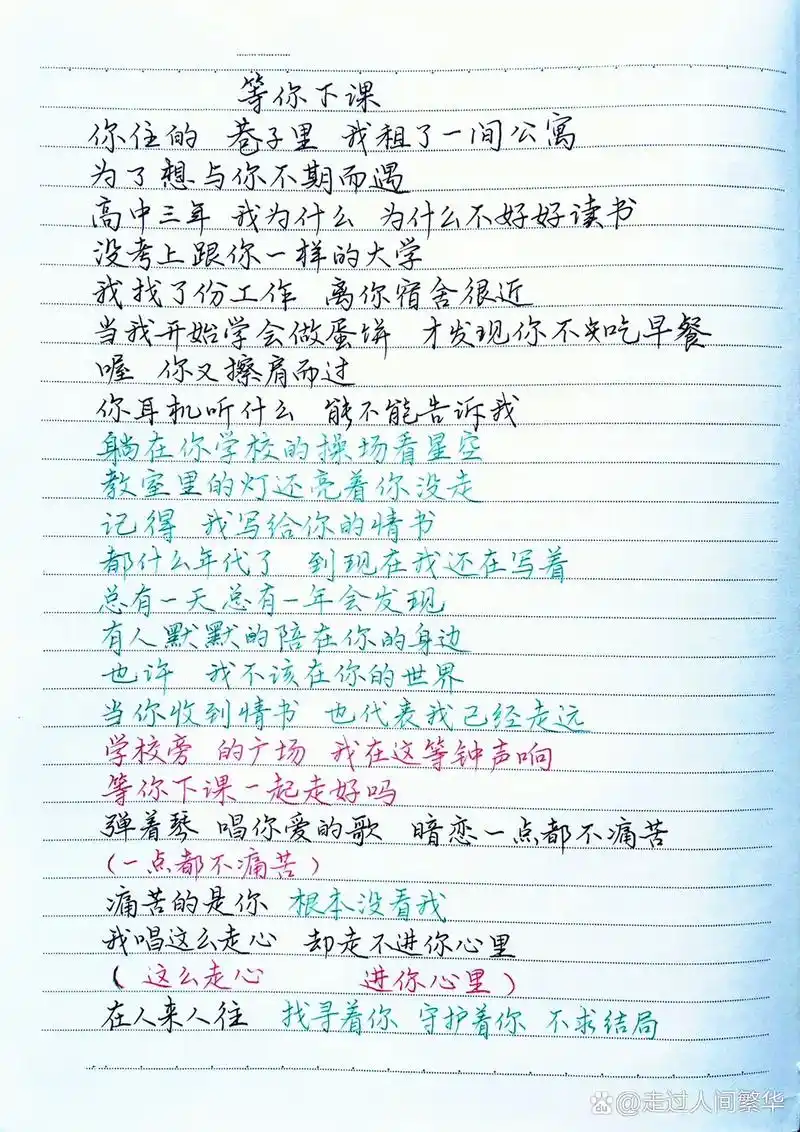 等你下课
你住的 巷子里 我租了一间公寓
为了想与你不期而遇
高中三年 我为什么 为什么不好好读书
没考上跟你一样的大学
我找了份工作 离你宿舍很近
当我开始学会做蛋饼 才发现你不知吃早餐
喔 你又擦肩而过
你耳机听什么 能不能告诉我
躺在你学校的操场看星空
教室里的灯还亮着你没走
记得 我写给你的情书
都什么年代了 到现在我还在写着
总有一天总有一年会发现
有人默默的陪在你的身边
也许 我不该在你的世界
当你收到情书 也代表我已经走远
学校旁 的广场 我在这等钟声响
等你下课一起走好吗
弹着琴 唱你爱的歌 暗恋一点都不痛苦
(一点都不痛苦)
痛苦的是你 根本没看我
我唱这么走心 却走不进你心里
(这么走心 进你心里)
在人来人往 找寻着你 守护着你 不求结局
Bai du @走过人间繁华